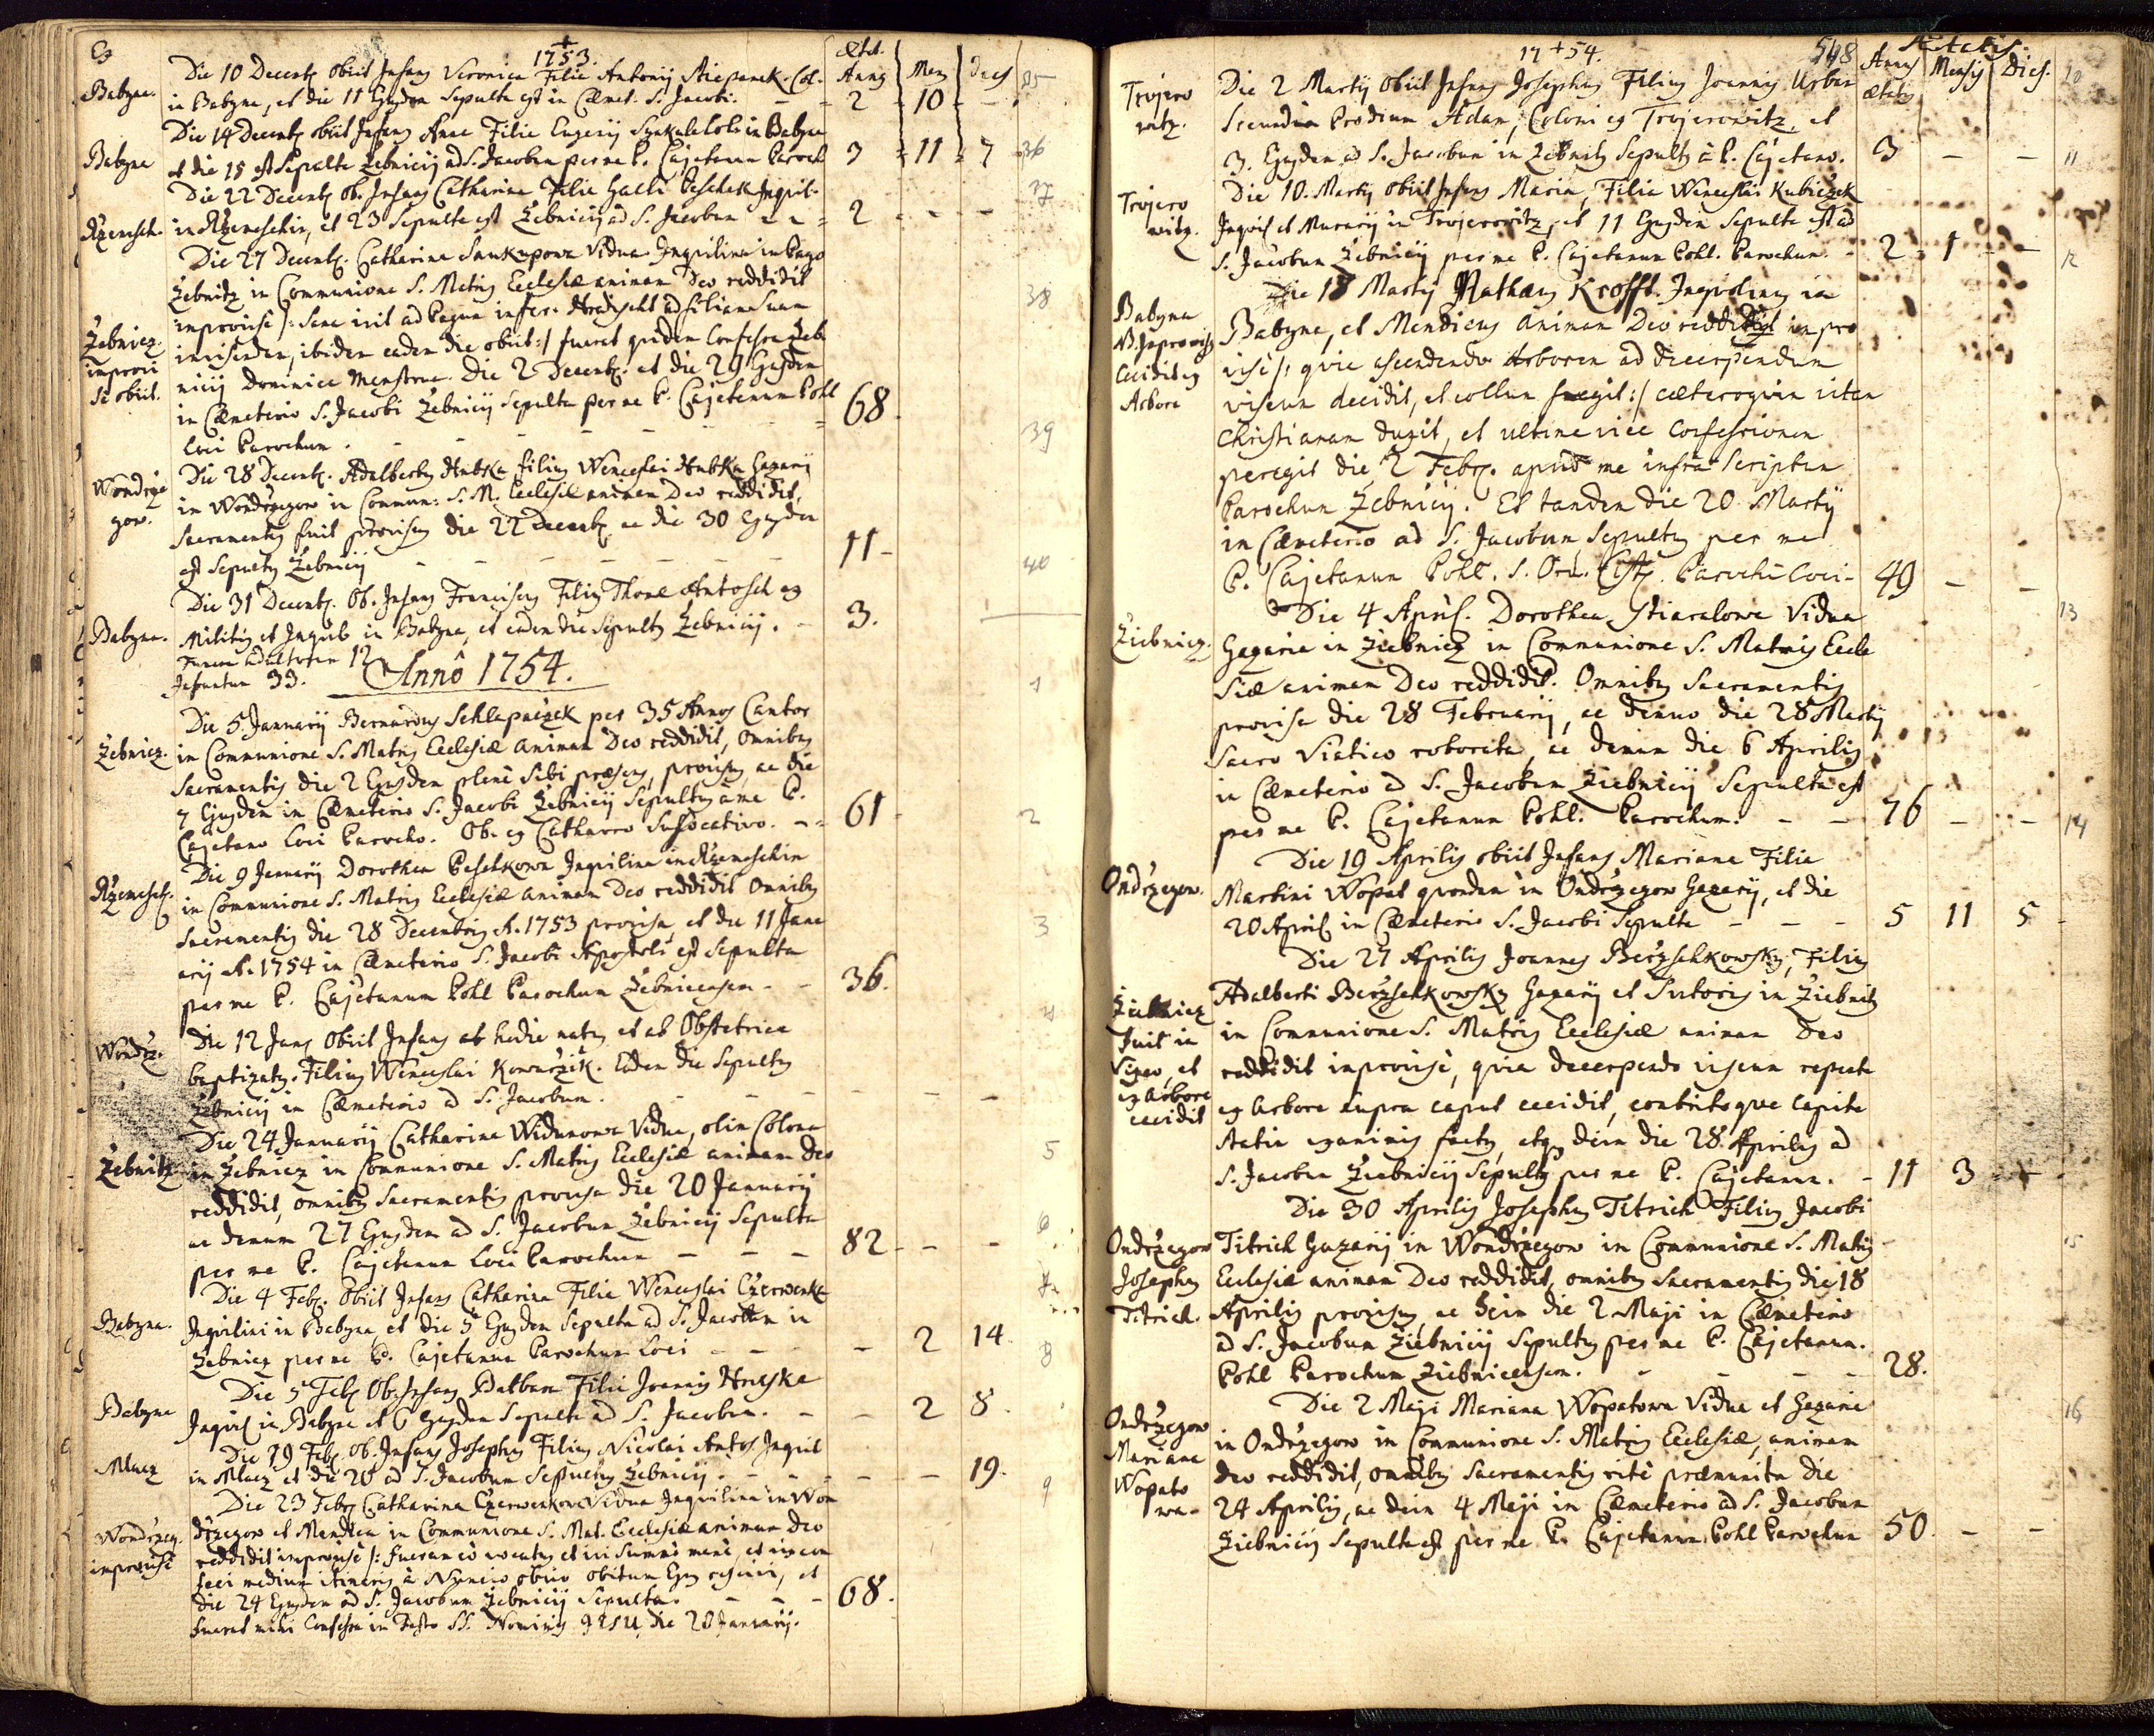 1753.
Ætat.
Anny Men Dies
Babyna. Die 10 Decemb. obiit Infans Veronica Filia Antonij Col.
in Babyna, et die 11 Ejusdem Sepulta est in Cæmet. S. Jacobi. 2 10 -
Die 14 Decemb. obiit Infans Anna Filia in Babyna
Babyna et die 15 est Sepulta Žebnicij ad S. Jacobum per me P. Cajetanum Paroch 3 11 7
Die 22 Decemb. Ob. Infans Catharina Filia Galli Peschek Inquil.
Rzemesch. in Rzemeschin, et 23 Sepulta est Žebnicij ad S. Jacobum 2 - -
Die 27 Decemb. Catharina Vidua Inquilina in Pago
Žebnitz in Communione S. Matris Ecclesiæ animam Deo reddidit
improvisè /: Sana ivit ad Pagum infer. Hradischt ad filiam Suam
Žebnicz. invisendam, ibidem eadem die obiit :/ fuerat quidem Confessa Žeb
improvi nicij Dominica Menstrua. Die 2 Decemb. et die 29 Ejusdem
se obiit. in Cæmeterio S. Jacobi Žebnicij Sepulta per me P. Cajetanum Pohl 68
loci Parochum.
Die 28 Decemb. Adalbertus Hubka filius Wenceslai Hubka Gazarij
Wondrze in Wondrzegow in Commun: S. M. Ecclesiæ animam Deo reddidit,
gow. Sacramentis fuit provisus die 22 Decemb. ac die 30 Ejusdem
est Sepultus Žebnicij 11 -
Die 31 Decemb. Ob. Infans Franciscus Filius Thomæ Antosch ex
Babyna. Militis et Inquil. in Babyna, et eadem die Sepultus Žebnicij. 3.
Adultorum 12
Infantum 33.
Annô 1754.
Die 5 Januarij Bernardus Schlapnizek per 35 Annos Cantor
Žebnicz. in Communione S. Matris Ecclesiæ animam Deo reddidit, Omnibus
Sacramentis die 2 Ejusdem plenè sibi præsens, provisus, ac die
7 Ejusdem in Cæmeterio S. Jacobi Žebnicij Sepultus à me P.
Cajetano loci Parocho. Ob. ex Catharro Suffocativo. 61
Die 9 Januarij Dorothea Peschkowa Inquilina in Rzemeschin
Rzemesch. in Communione S. Matris Ecclesiæ animam Deo reddidit Omnibus
Sacramentis die 28 Decembris A. 1753 provisa, et die 11 Janu
arij A. 1754 in Cæmeterio S. Jacobi Apostoli est Sepulta
per me P. Cajetanum Pohl Parochum Žebnicensem 36.
Die 12 Janu obiit Infans ab hodie natus et ab Obstetrice
Wondrz. baptizatus. Filius Wenceslai Kowarzik. Eadem die Sepultus
Žebnicij in Cæmeterio ad S. Jacobum.
Die 24 Januarij Catharina Widunowa Vidua, olim Colona
Žebnitz in Žebnicz in Communione S. Matris Ecclesiæ animam Deo
reddidit, omnibus Sacramentis provisa die 20 Januarij
ac demum 27 Ejusdem ad S. Jacobum Žebnicij Sepulta
per me P. Cajetanum Loci Parochum 82
Die 4 Feb. Obiit Infans Catharina Filia Wenceslai Czerwenka
Babyna. Inquilini in Babyna et die 5 Ejusdem Sepulta ad S. Jacobum in
Žebnicz per me P. Cajetanum Parochum Loci - 2 14.
Die 5 Feb. Ob. Infans Barbara Filia Joannis Hruska
Babyna Inquil. in Babyna et 6 Ejusdem Sepulta ad S. Jacobum. - 2 8.
Die 19 Feb. Ob. Infans Josephus Filius Nicolai Antos. Inquil
Mlacz in Mlacz et die 20 ad S. Jacobum Sepultus Žebnicij. - - 19.
Die 23 Febr. Catharina Czerwenkova Vidua Inquilina in Won
Wondrzeg. drzegow et Mendica in Communione S. Mat. Ecclesiæ animam Deo
improvisè reddidit improvisè /: fueram eò vocatus et ivi Summo mane, et
feci medium itineris à Nuncio obvio obitum Ejus rescivi, et
die 24 Ejusdem ad S. Jacobum Žebnicij Sepulta. 68.
fuerat mihi Confessa in Festo SS. Nominis JESU, die 20 Januarij.
17 54. 548
Ætatis.
Anny ætatis Mensis Dies.
Trojero Die 2 Martij Obiit Infans Josephus Filius Joannis Urban
witz. Secundum Prædium Adam, Coloni ex Trojerowitz, et
3. Ejusdem ad S. Jacobum in Žebnitz Sepultus à P. Cajetano. 3 - -
Die 10. Martij obiit Infans Maria, Filia Wenceslai Kubiczek
Trojero Inquil et Murarij in Trojerowitz, et 11 Ejusdem Sepulta est ad
witz. S. Jacobum Žebnicij per me P. Cajetanum Pohl. Parochum. 2 1 -
Die 18 Martij Mathæus Krofft. Inquilinus in
Babyna Babyna, et Mendicus animam Deo reddidit impro
visè /: quia ascendendo Arborem ad decerpendum
Cecidit ex viscum decidit, et collum fregit :/ cæteroquin vitam
Arbore Christianam duxit, et ultima vice Confessionem
peregit die 2 Febr. apud me infra Scriptum
Parochum Žebnicij. Et tandem die 20 Martij
in Cæmeterio ad S. Jacobum Sepultus per me
P. Cajetanum Pohl. S. Ord. Cist. Parochum Loci 49 - -
Die 4 April. Dorothea Vidua
Žiebnicz. Gazaria in Žiebnicz in Communione S. Matris Eccle
siæ animam Deo reddidit. Omnibus Sacramentis
provisa die 28 Februarij, ac denuo die 28 Martij
Sacro Viatico roborata, ac demum die 6 Aprilis
in Cæmeterio ad S. Jacobum Žiebnicij Sepulta est
per me P. Cajetanum Pohl. Parochum. 76 - -
Die 19 Aprilis obiit Infans Mariana Filia
Ondrzegow. Martini Wopat quondam in Ondrzegow Gazarij, et die
20 April in Cæmeterio S. Jacobi Sepulta - - - 5 11 5
Die 27 Aprilis Joannes Berzschkowsky, Filius
Žiebnicz Adalberti Berzschkowsky Gazarij et Sutoris in Žiebnitz
Fuit in in Communione S. Matris Ecclesiæ animam Deo
et reddidit improvisè, quia decerpendo viscum repente
ex Arbore ex arbore supra caput cecidit, contritoque Capite
cecidit statim exanimis factus, atq. dein die 28 Aprilis ad
S. Jacobum Žiebnicij Sepultus per me P. Cajetanum. 11 3
Die 30 Aprilis Josephus Titrich Filius Jacobi
Ondrzegow Titrich Gazarij in Wondrzegow in Communione S. Matris
Josephus Ecclesiæ animam Deo reddidit, omnibus Sacramentis die 18
Titrich. Aprilis provisus, ac dein die 2 Maji in Cæmeterio
ad S. Jacobum Žiebnicij Sepultus per me P. Cajetanum.
Pohl Parochum Žiebnicensem. 28.
Die 2 Maji Mariana Wopatowa Vidua et Gazaria
Ondrzegow in Ondrzegow in Communione S. Matris Ecclesiæ, animam
Mariana Deo reddidit, omnibus Sacramentis ritè præmunita die
Wopato 24 Aprilis, ac dein 4 Maji in Cæmeterio ad S. Jacobum
wa. Žiebnicij Sepulta est per me P. Cajetanum Pohl Parochum 50 - -